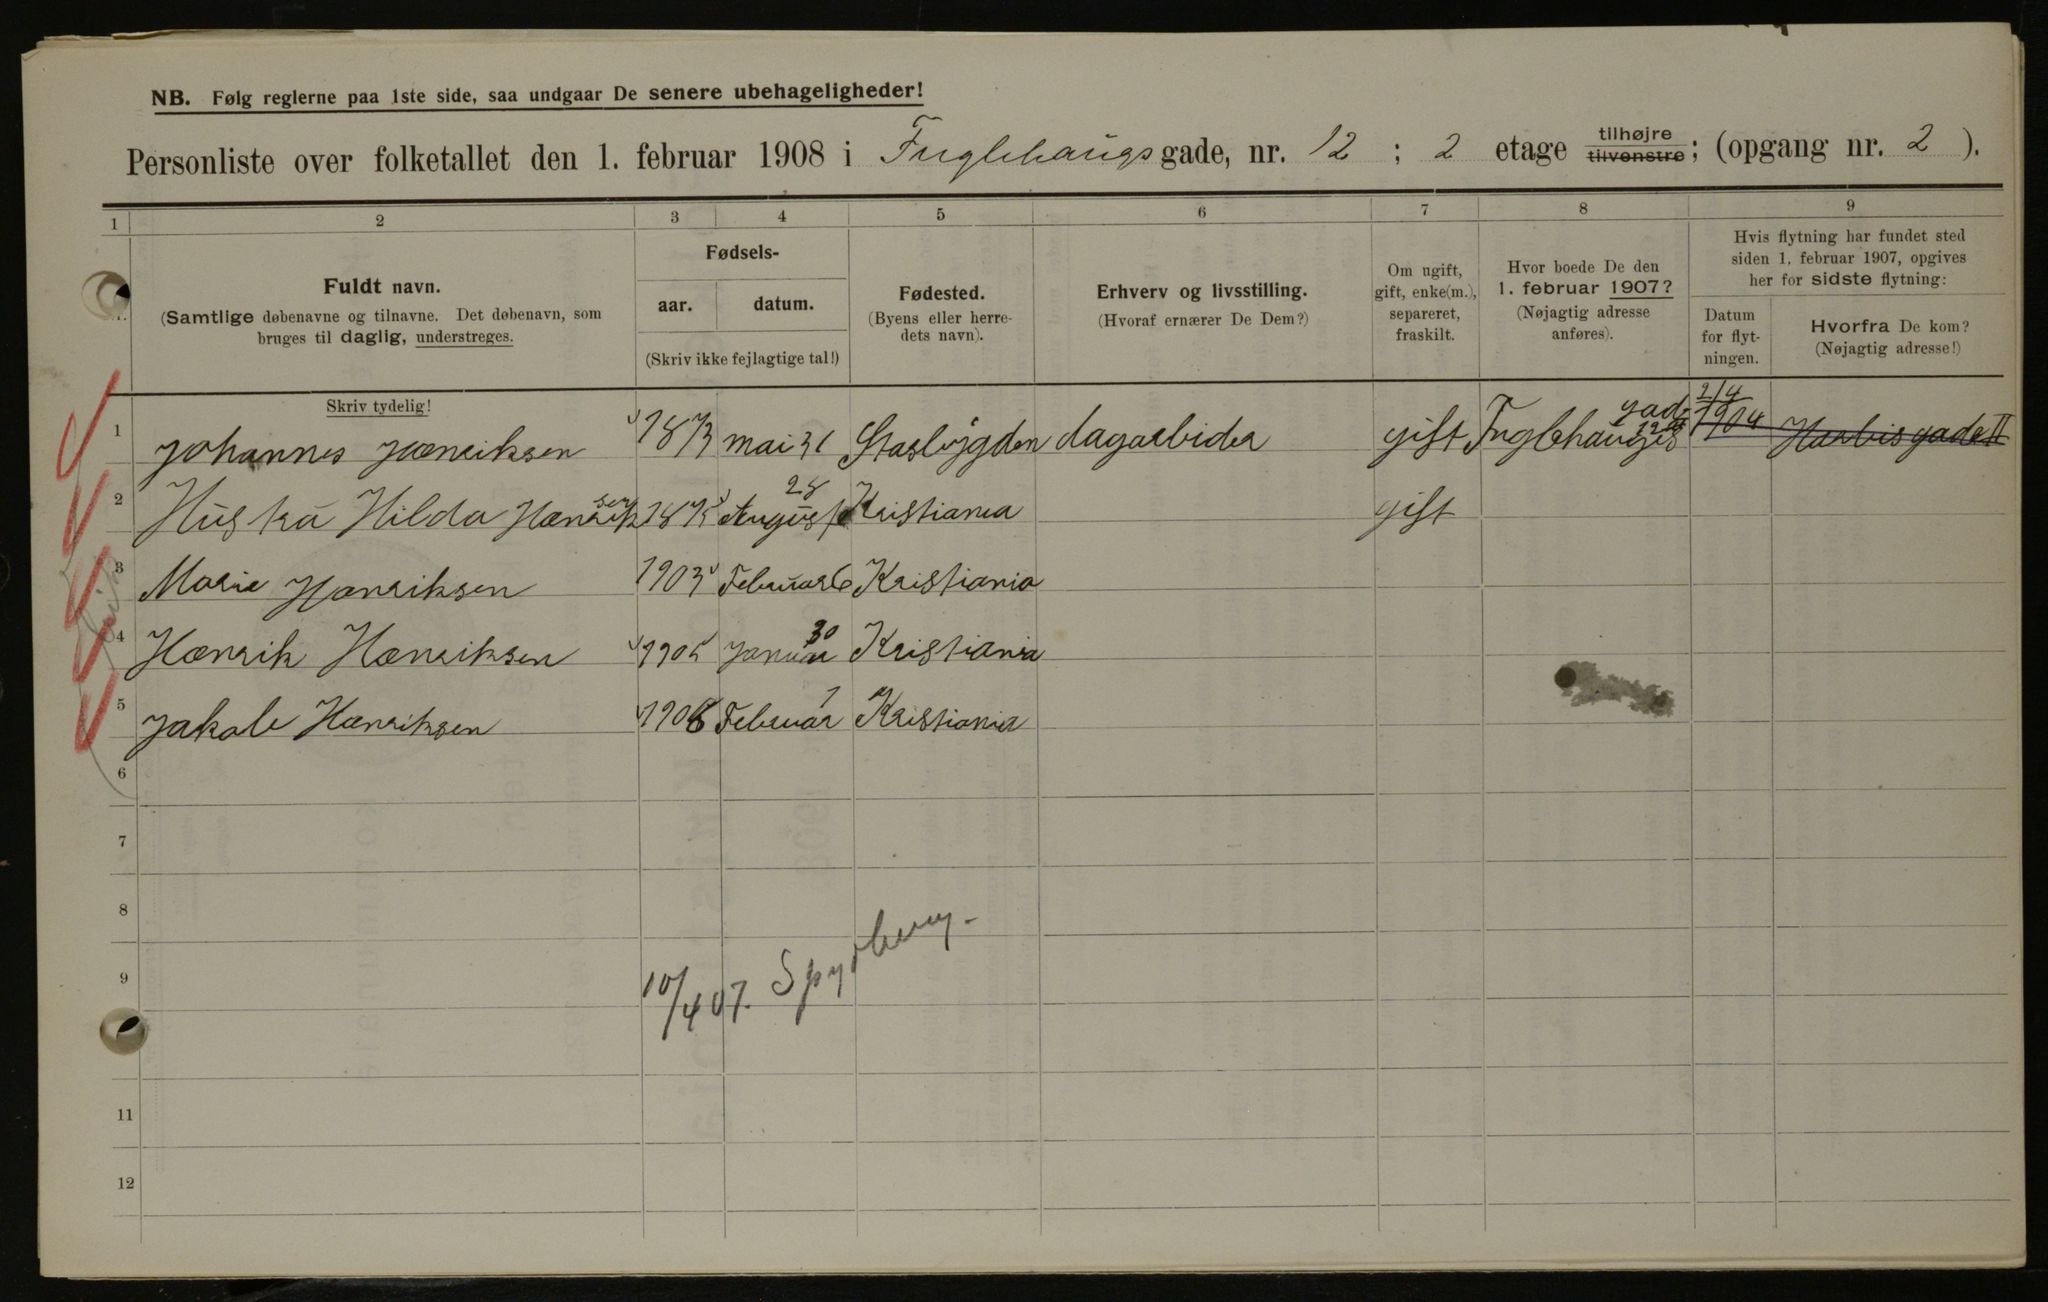 NB. Følg reglerne paa 1ste side, saa undgaar De senere ubehageligheder!
Personliste over folketallet den 1. februar 1908 i Fuglehaugsgade, nr. 12 ; 2 etage tilhøjre tilvenstre; (opgang nr. 2 ).
1 2 3 4 5 6 7 8 9
Fuldt navn.
(Samtlige døbenavne og tilnavne. Det døbenavn, som
bruges til daglig, understreges.
Fødsels-
aar. datum.
(Skriv ikke fejlagtige tal!)
Fødested.
(Byens eller herre-
dets navn).
Erhverv og livsstilling.
(Hvoraf ernærer De Dem?)
Om ugift,
gift, enke(m.),
separeret,
fraskilt.
Hvor boede De den
1. februar 1907?
(Nøjagtig adresse
anføres).
Hvis flytning har fundet sted
siden 1. februar 1907, opgives
her for sidste flytning:
Datum
for flyt-
ningen.
Hvorfra De kom?
(Nøjagtig adresse!)
Skriv tydelig!
1 Johannes Hænriksen 1873 mai 31 Stasbygden dagarbider gift Fuglehaugs gad 12 2/4 1904 gade II
2 Hustru Hilda Hænriksen August 28 Kristiania gift
3 Marie Hænriksen 1903 Februar 6 Kristiania
4 Hænrik Hænriksen Januar 30 Kristiania
5 Jakob Hænriksen 1906 Februar 7 Kristiania
6
7
8
9
10/4 07. Spydberg.
11
12